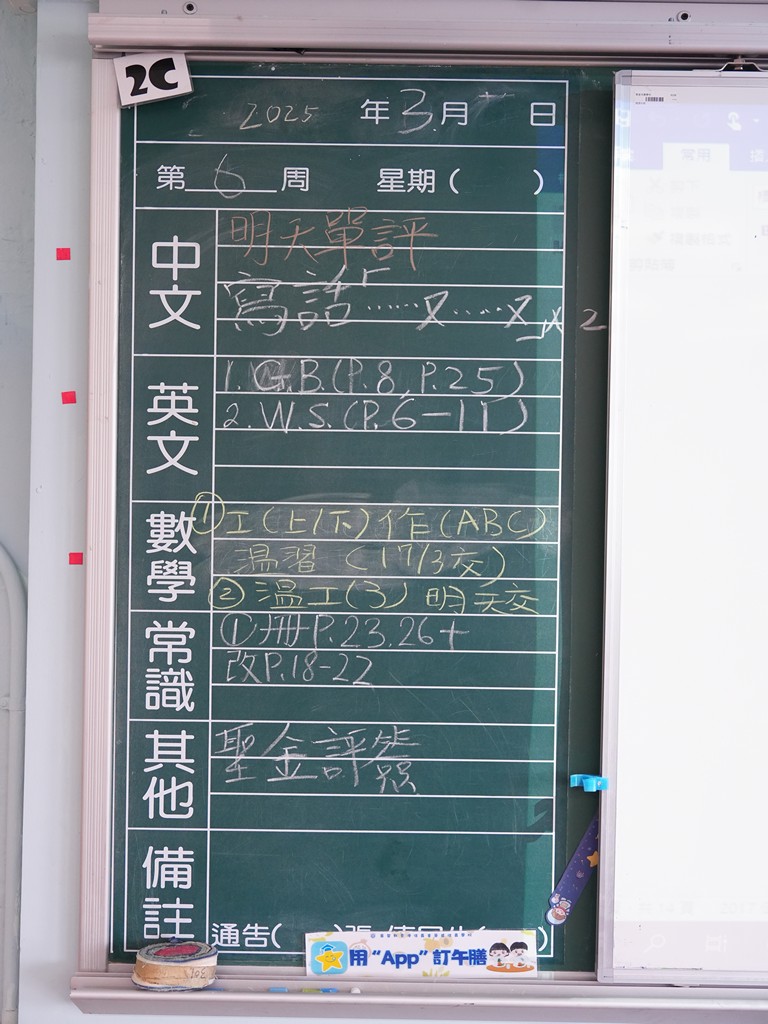 2C
2025 年 3 月 日
第 6 周 星期( )
中文
明天單評
寫話「……又……又」x 2
英文
1. G.B.(P.8, P.25)
2. W.S.(P.6-11)
數學
① 工(上/下)作(ABC)
溫習 (17/3交)
② 溫工(3) 明天交
常識
① 册P.23.26+
改P.18-22
其他
聖金評
備註
通告(
用 "App" 訂午膳
常用